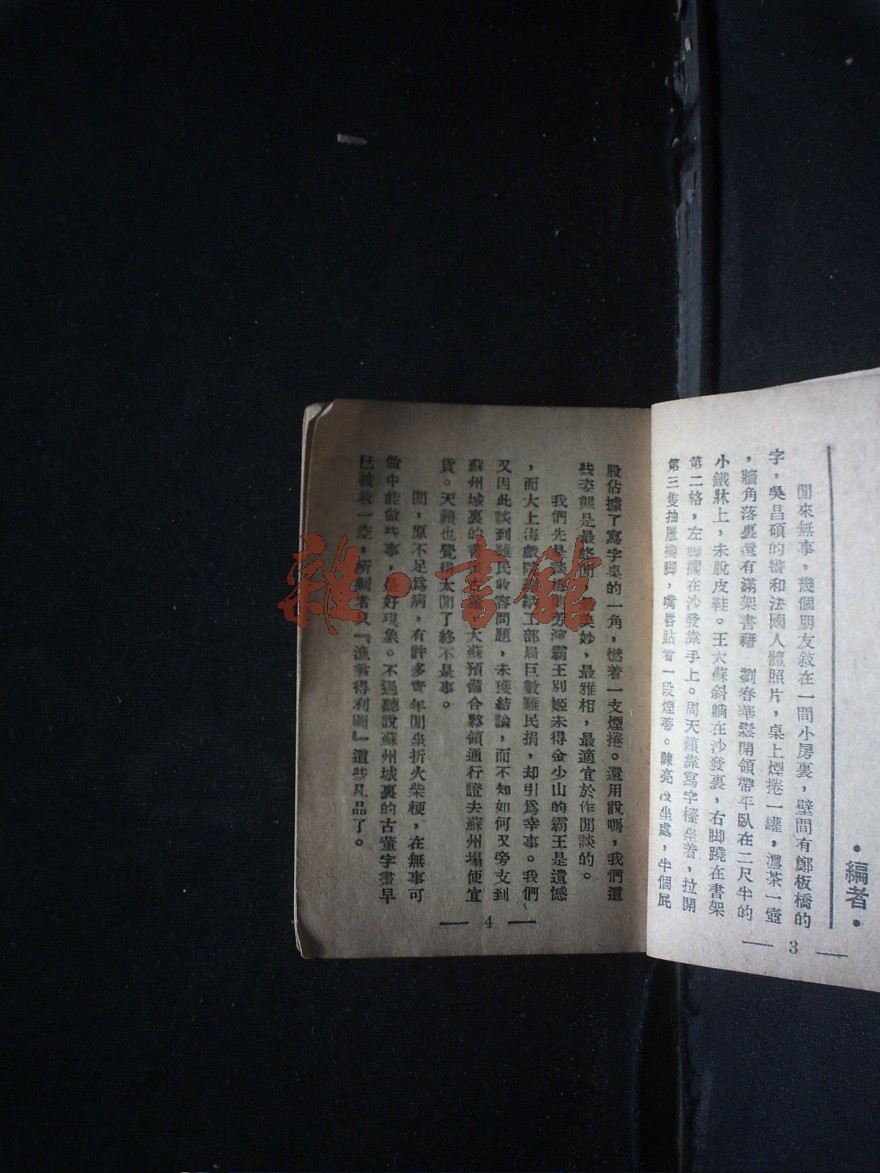 •編者•
閒來無事，幾個朋友敍在一間小房裏，壁間有鄭板橋的
字，吳昌碩的畫和法國人體照片，桌上煙捲一罐，濃茶一壺
，牆角落裏還有滿架書籍 劉春華鬆開領帶平臥在二尺半的
小鐵牀上，未脫皮鞋。王大蘇斜躺在沙發裏，右脚蹺在書架
第二格，左脚擱在沙發靠手上。周天籟靠寫字檯坐着，拉開
第三隻抽屜擱脚，嘴唇貼着一段煙蒂。陳亮 沒坐處，半個民
— 3 —
股佔據了寫字桌的一角，燃着一支煙捲。還用說嗎，我們這
些姿態是最悠閒，最美妙，最雅相，最適宜於作閒談的。
我們先是談 芳演霸王別姬未得金少山的霸王是遺憾
，而大上海戲院 工部局巨數難民捐，却引爲幸事。我們
又因此談到難民收容問題，未獲結論，而不知如何又旁支到
蘇州城裏的書 大蘇預備合夥領通行證去蘇州塲便宜
貨。天籟也覺得太閒了終不是事。
閒，原不足爲病，有許多靑年閒坐折火柴梗，在無事可
做中能做些事，是好現象。不過聽說蘇州城裏的古董字畫早
已被收一空，所剩者只『漁翁得利圖』一這些凡品了。
— 4 —
雜·書館